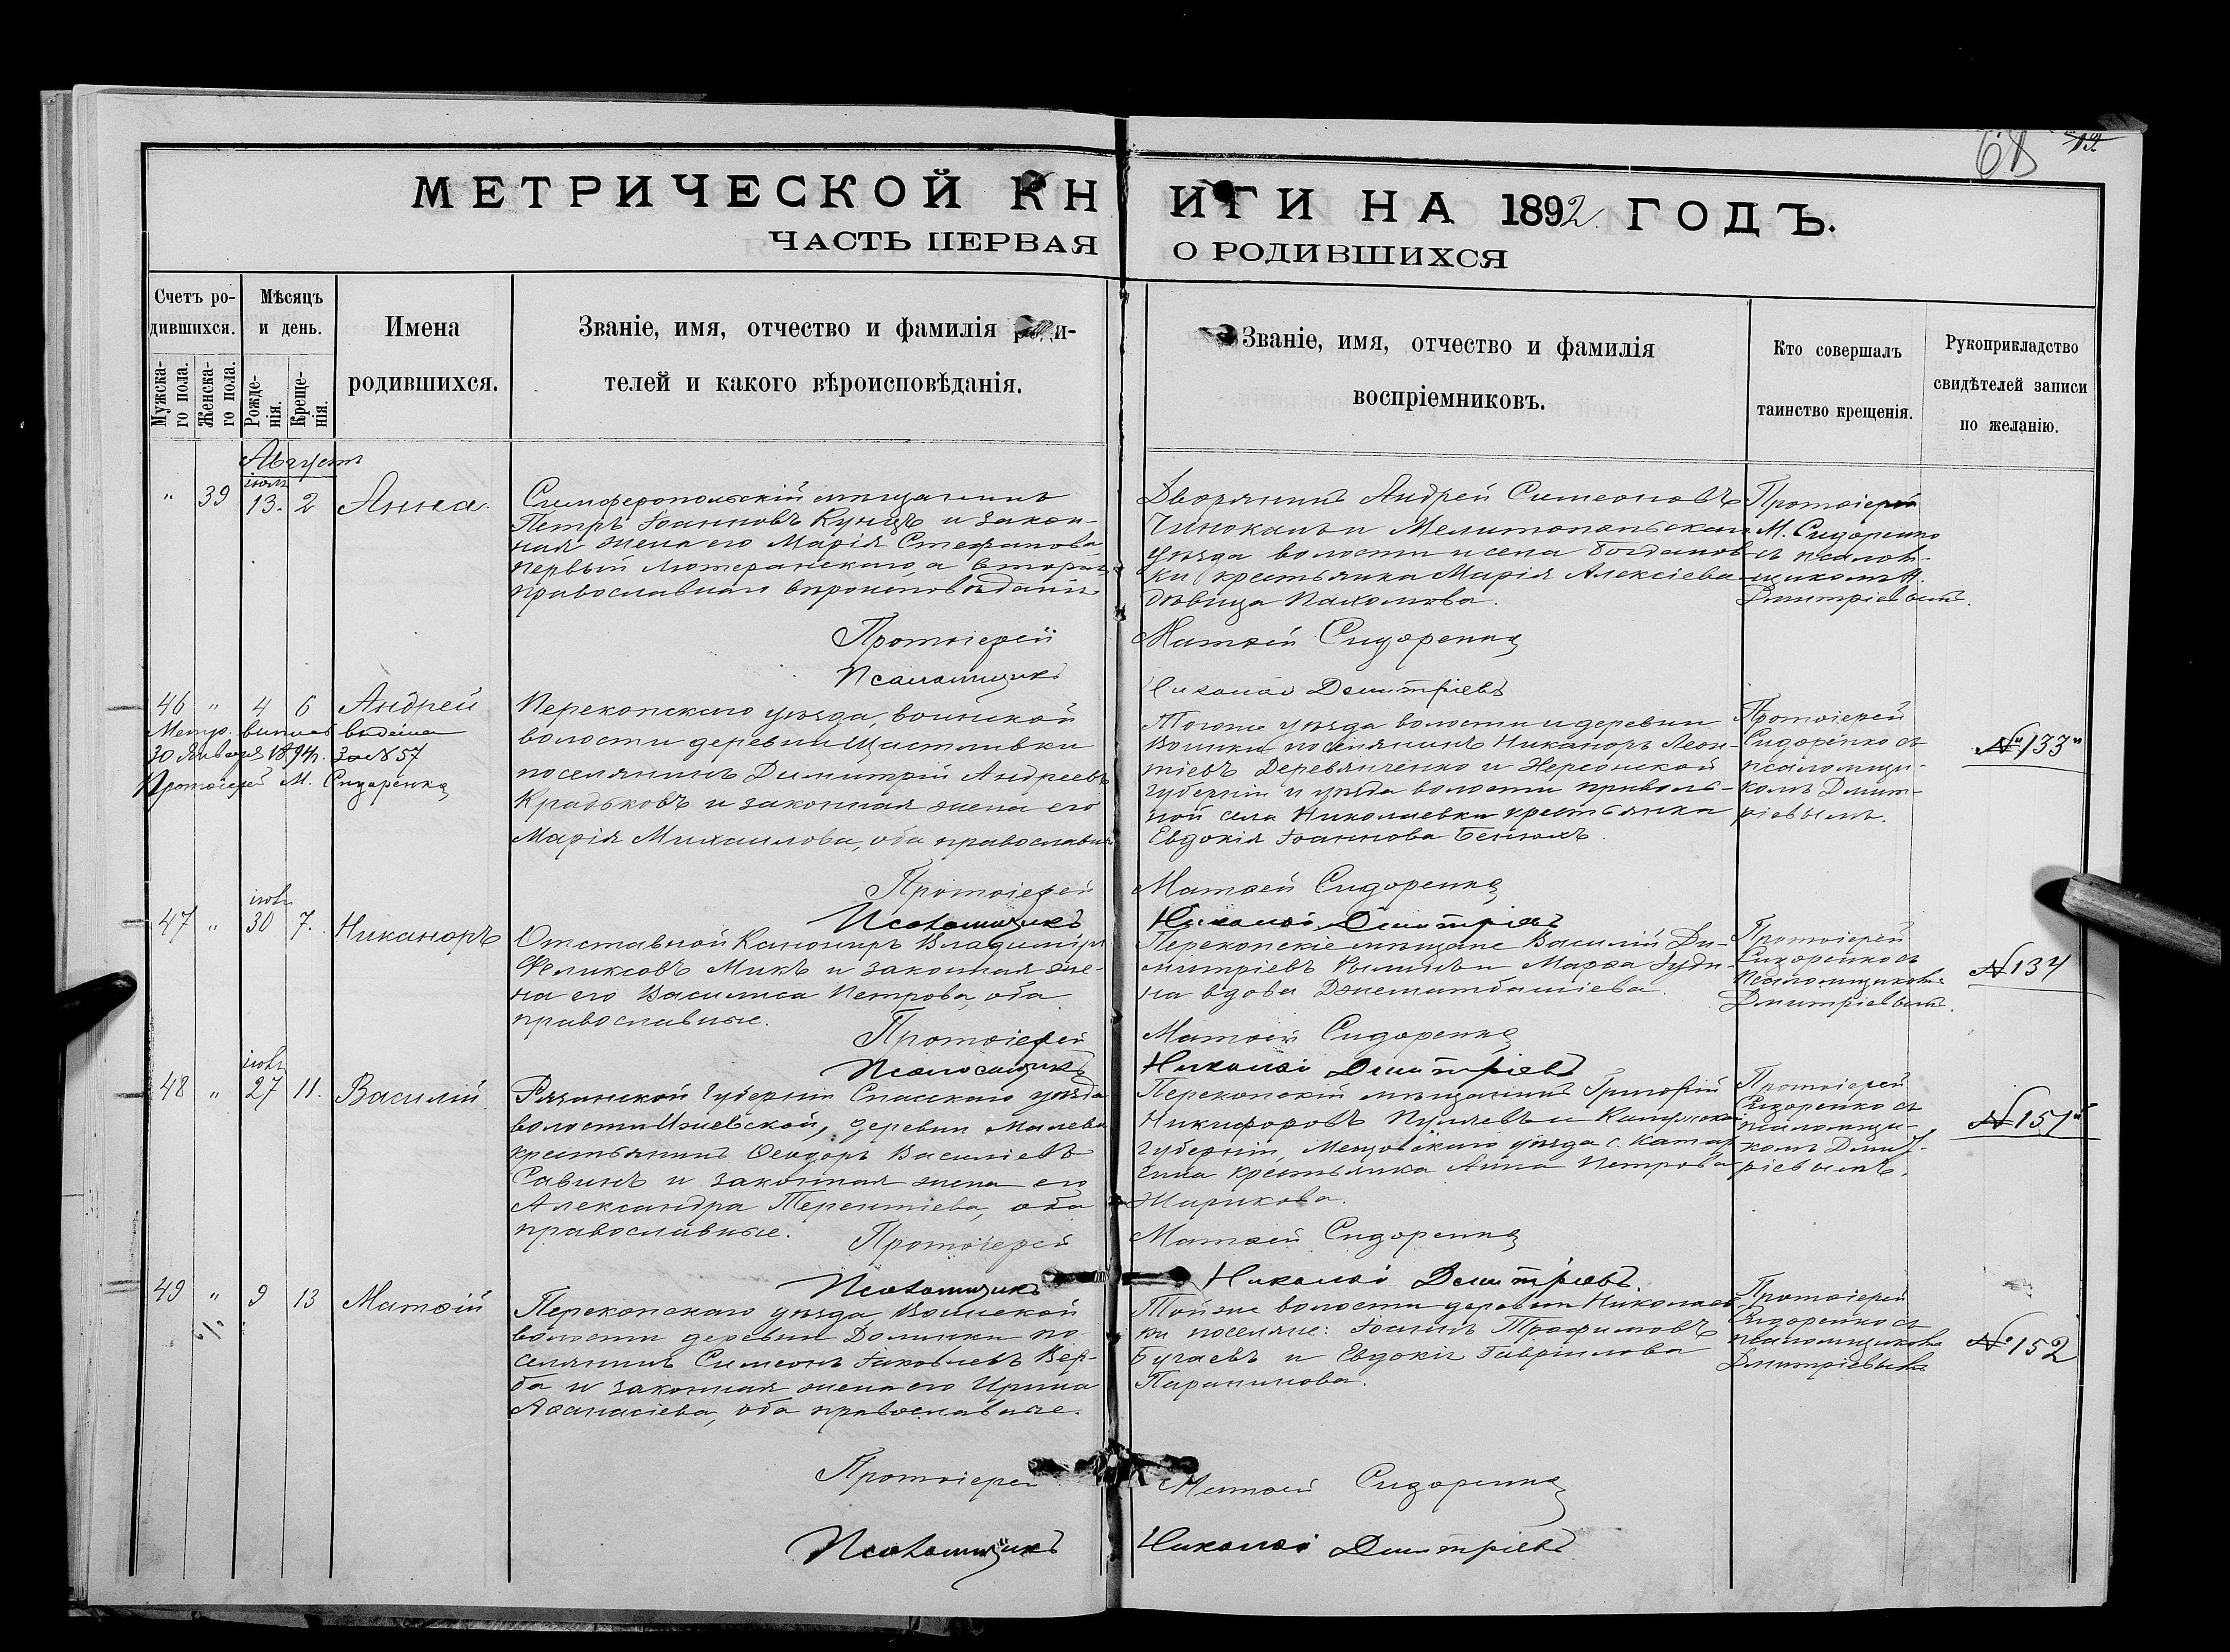 68
МЕТРИЧЕСКОЙ КНИГИ НА 1892 ГОДЪ.
ЧАСТЬ ПЕРВАЯ О РОДИВШИХСЯ
Счетъ ро-
дившихся.
Мужска-
го пола.
Женска-
го пола.
Мѣсяцъ
и день.
Рожде-
нія.
Креще-
нія.
Имена
родившихся.
Званіе, имя, отчество и фамилія роди-
телей и какого вѣроисповѣданія.
Званіе, имя, отчество и фамилія
воспріемниковъ.
Кто совершалъ
таинство крещенія.
Рукоприкладство
свидѣтелей записи
по желанію.
Августъ
іюль
" 39 13. 2 Анна.
Симферопольскій мѣщанинъ
Петръ Іоанновъ Кунцъ и закон-
ная жена его Марія Стефанова,
первый лютеранскаго, а вторая
православнаго вѣроисповѣданія.
Дворянинъ Андрей Симеоновъ
и Мелитопольскаго
уѣзда волости и села Богданов-
ки крестьянка Марія Алексіева
дѣвица Пахомова.
Протоіерей
М. Сидоренко
съ псалом-
щикомъ Н.
Дмитріевымъ.
Протоіерей Матѳей Сидоренко
Псаломщикъ Николай Дмитріевъ
46 " 4 6 Андрей
Метр. выпись выдана
30 Января 1894 г. за № 57
Протоіерей М. Сидоренко
Перекопскаго уѣзда, воинской
волости деревни Щастливки
поселянинъ Димитрій Андреевъ
Крадьковъ и законная жена его
Марія Михаилова, оба православные
Тогоже уѣзда волости и деревни
Воинки поселянинъ Никаноръ Леон-
тіевъ Деревянченко и Херсонской
губерніи и уѣзда волости приволь-
ной села Николаевки крестьянка
Евдокія Іоаннова
Протоіерей
Сидоренко съ
псаломщи-
комъ Дмит-
ріевымъ.
№ 133
Протоіерей Матѳей Сидоренко
Псаломщикъ Николай Дмитріевъ
іюль
47 " 30 7. Никаноръ
Отставной Канониръ Владиміръ
Феликсовъ Микъ и законная же-
на его Василиса Петрова, оба
православные.
Перекопскіе мѣщане Василій Ди-
митріевъ и Марѳа
вдова
Протоіерей
Сидоренко съ
псаломщикомъ
Дмитріевымъ.
№ 134
Протоіерей Матѳей Сидоренко
Псаломщикъ Николай Дмитріевъ
іюль
48 " 27 11. Василій
Рязанской губерніи Спасскаго уѣзда
волости Ижевской, деревни Малева
крестьянинъ Ѳеодоръ Василіевъ
Савинъ и законная жена его
Александра Терентіева, оба
православные.
Перекопскій мѣщанинъ Григорій
Никифоровъ и Калужской
губерніи, Мещовскаго уѣзда с.
крестьянка Анна Петрова
Жарикова.
Протоіерей
Сидоренко съ
псаломщи-
комъ Дмит-
ріевымъ.
№ 151
Протоіерей Матѳей Сидоренко
Псаломщикъ Николай Дмитріевъ
49 " 9 13 Матѳій
Перекопскаго уѣзда, Воинской
волости деревни Долинки по-
селянинъ Симеонъ Іаковлевъ Вер-
ба и законная жена его Ирина
Аѳанасіева, оба православные.
Той же волости деревни Николаев-
ки поселяне: Іоаннъ Трофимовъ
Бугаевъ и Евдокія Гавріилова
Протоіерей
Сидоренко съ
псаломщикомъ
Дмитріевымъ
№ 152
Протоіерей Матѳей Сидоренко
Псаломщикъ Николай Дмитріевъ